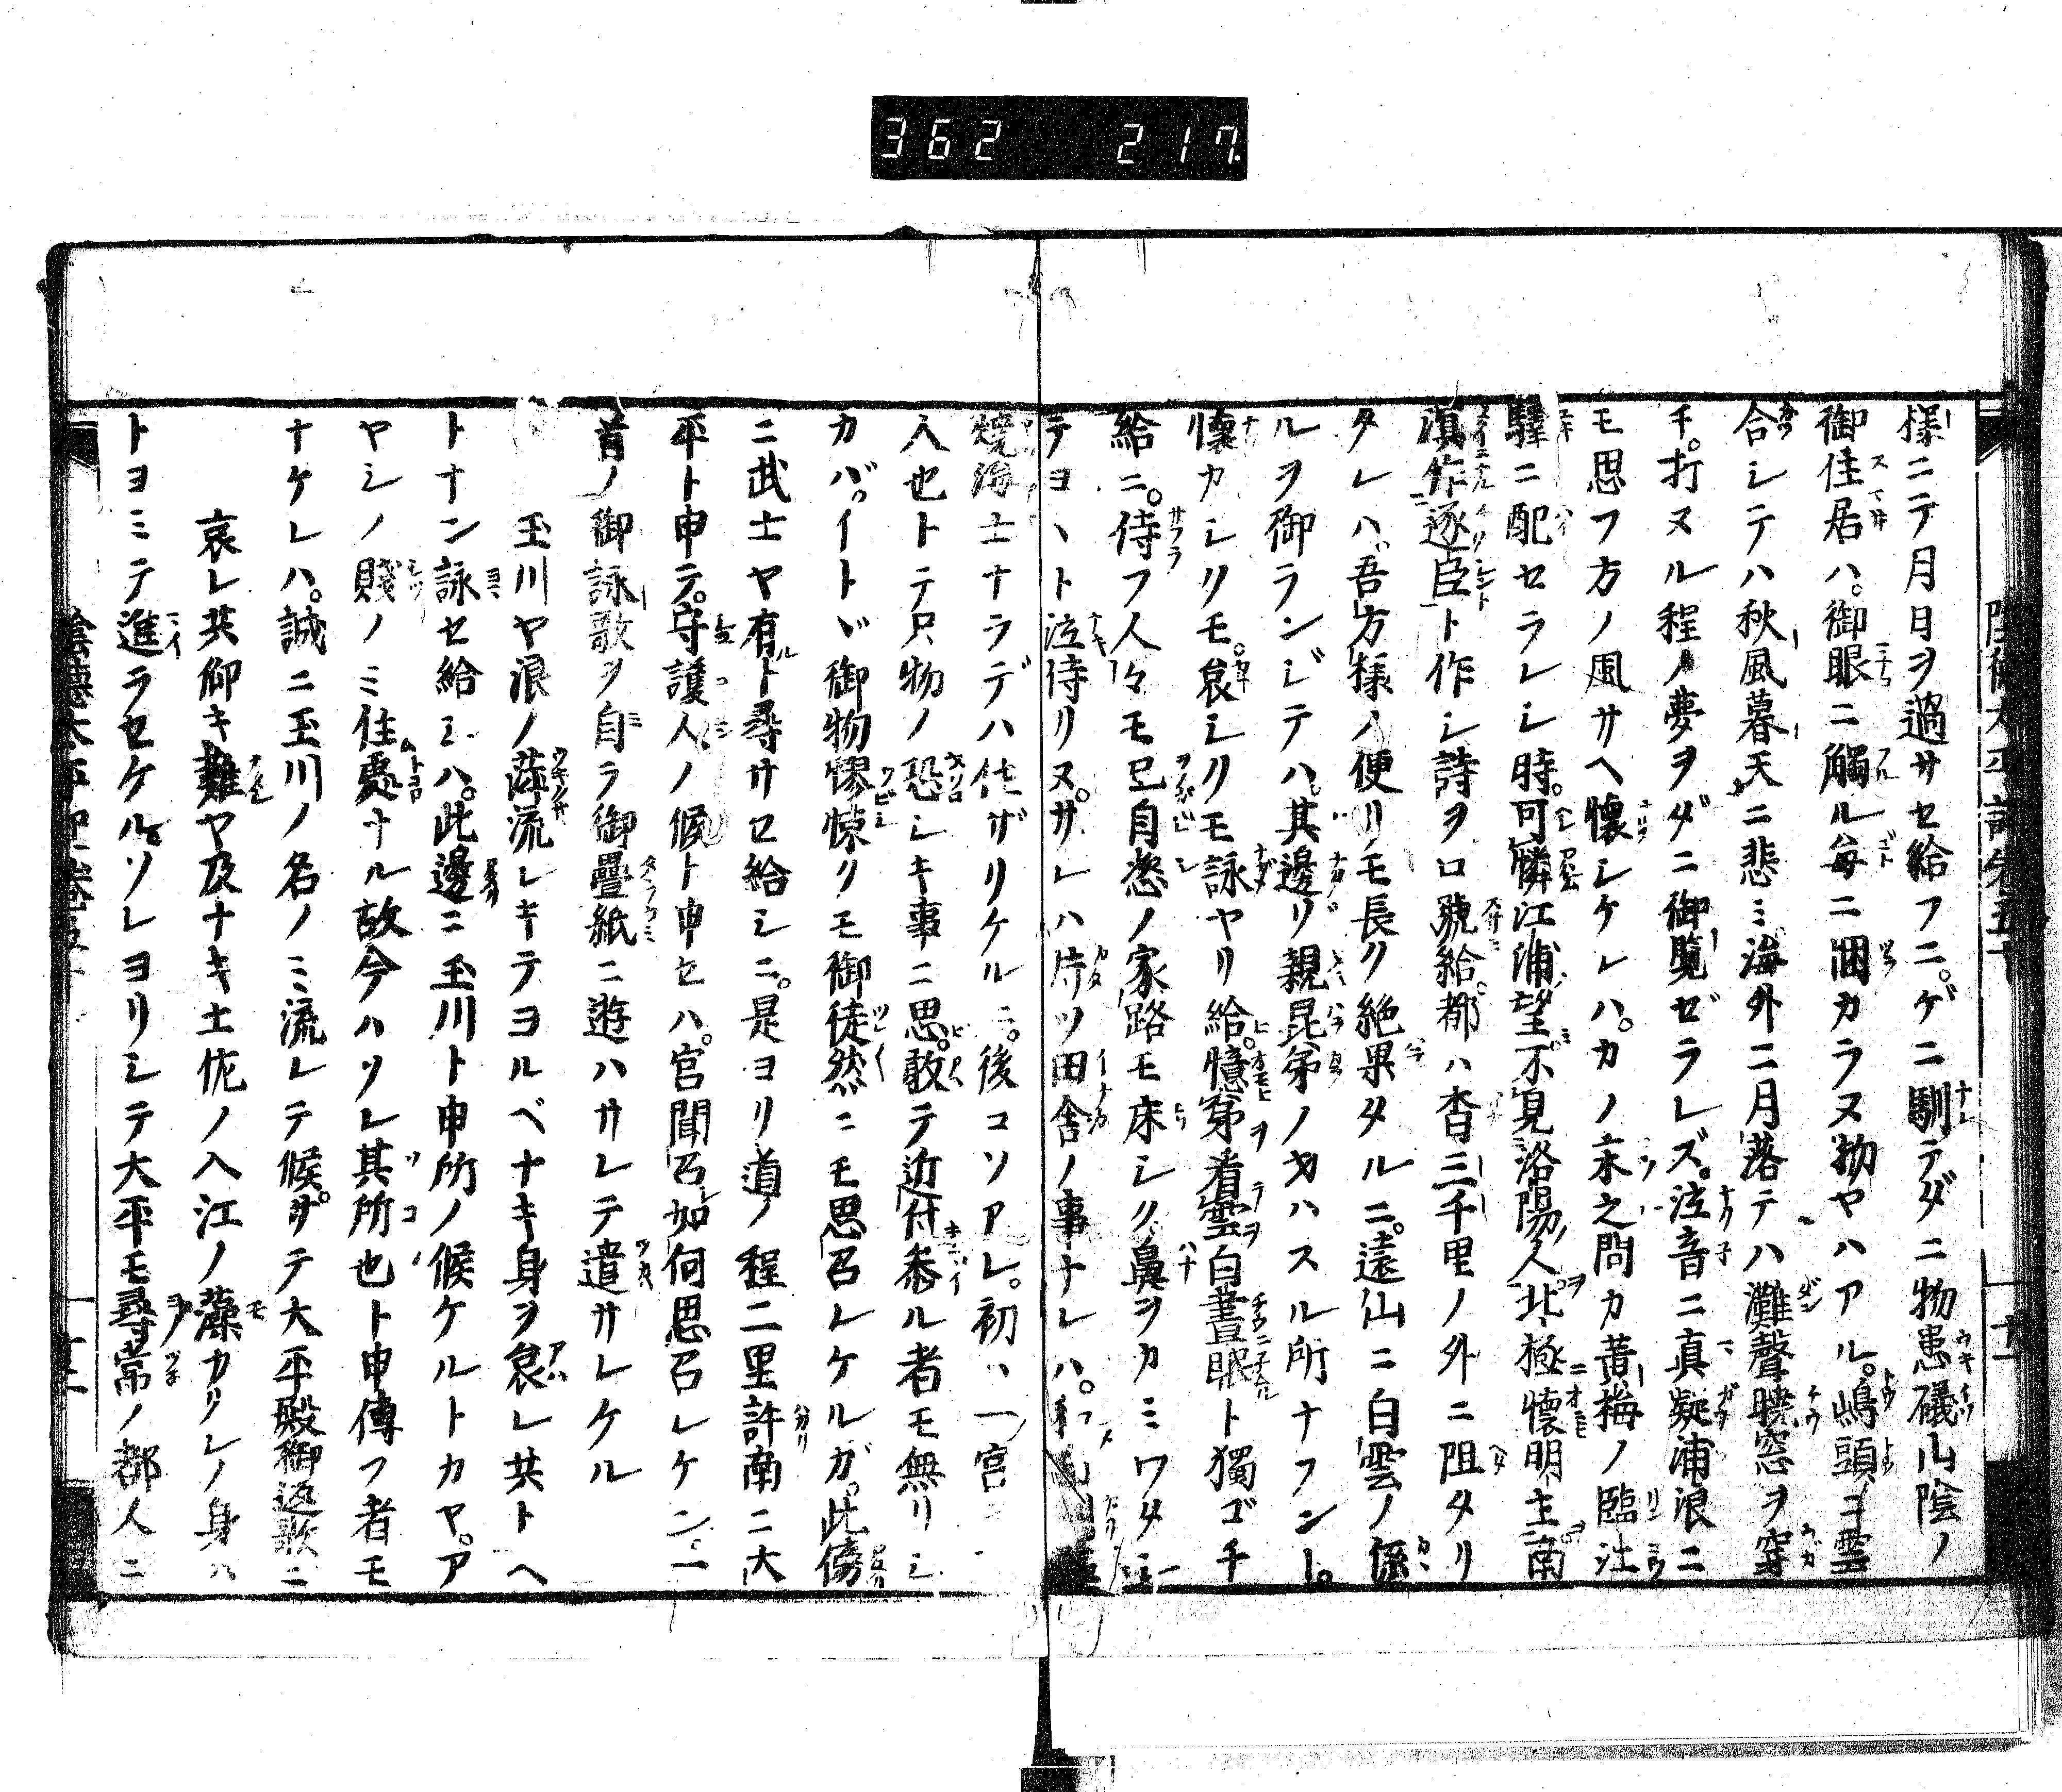 362 217
陰徳太平記卷五十
十一
様ニテ月日ヲ過サセ給フニ。ゲニ馴テダニ物患礒山陰ノ
御住居ハ。御眼ニ觸ル毎ニ悃カラヌ物ヤハアル。嶋頭ニ雲
合シテハ秋風暮天ニ悲ミ海外ニ月落テハ灘聲曉窓ヲ穿
チ。打ヌル程ノ夢ヲダニ御覧ゼラレズ。泣音ニ真疑浦浪ニ
モ思フ方ノ風サヘ懐シケレハ。カノ宋之問カ黄梅ノ臨江
驛ニ配セラレシ時。可憐江浦望不見洛陽人北極懐明主南
滇作逐臣ト作シ詩ヲロ號給。都ハ杳三千里ノ外ニ阻タリ
タレハ。吾方様ノ便リモ長ク絶果タルニ。遠山ニ白雲ノ係
ルヲ御ランジテハ。其邊リ親昆弟ノ
懐カシクモ。哀シクモ詠ヤリ給。憶弟看雲白晝眠ト獨ゴチ
給ニ。侍フ人々モ已自愁ノ家路モ床シク鼻ヲカミワタ
テヨヽト泣侍リヌ。サレハ片ツ田舎ノ事ナレハ。
焼海士ナラデハ住ザリケルニ。後コソアレ。初ハ一宮
入也トテ只物ノ恐シキ事ニ思。敢テ近付参ル者モ無リシ
カバ。イトヾ御物憀悷クモ御徒然ニモ思召レケルガ。此傍
ニ武士ヤ有ト尋サセ給シニ。是ヨリ道ノ程二里許南ニ大
平ト申テ。守護人ノ候ト申セハ。宮聞召如何思召レケン。一
首ノ御詠歌ヲ自ラ御疊紙ニ遊ハサレテ遣サレケル
玉川ヤ浪ノ萍流レキテヨルベナキ身ヲ哀レ共トヘ
トナン詠セ給シハ。此邊ニ玉川ト申所ノ候ケルトカヤ。ア
ヤシノ賤ノミ住処ナル故今ハソレ其所也ト申傳フ者モ
ナケレハ。誠ニ玉川ノ名ノミ流レテ候。サテ大平殿御返歌ニ
哀レ共仰キ難ヤ及ナキ土佐ノ入江ノ藻カクレノ身ハ
トヨミテ進ラセケル。ソレヨリシテ大平モ尋常ノ都人ニ
陰徳太平記卷五十